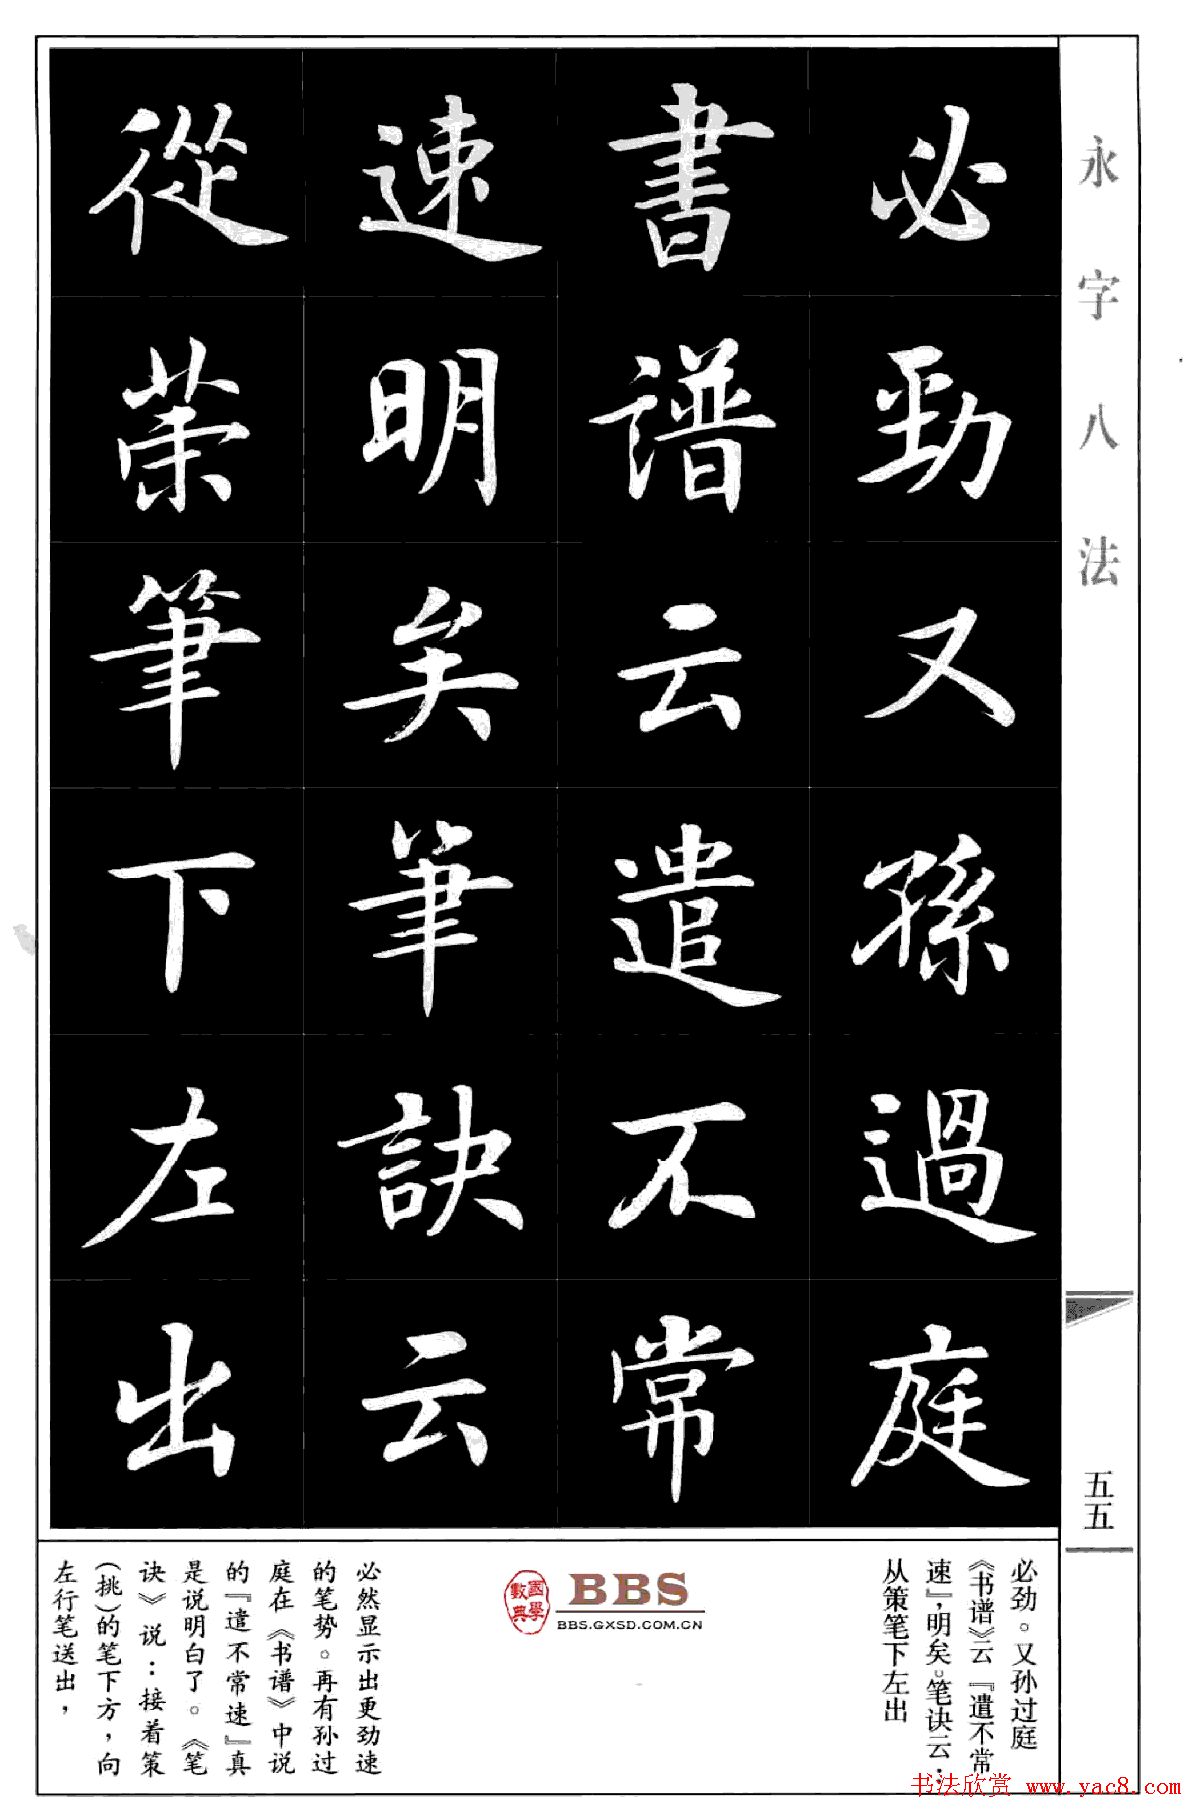 永字八法
必勁又孫過庭
書譜云遣不常
速明矣筆訣云
從荣筆下左出
五五
必劲。又孙过庭
《书谱》云『遣不常
速』，明矣。笔诀云：
从策笔下左出
國學數典
BBS
BBS.GXSD.COM.CN
必然显示出更劲速
的笔势。再有孙过
庭在《书谱》中说
的『遣不常速』真
是说明白了。《笔
诀》说：接着策
(挑)的笔下方，向
左行笔送出，
书法欣赏 www.yac8.com